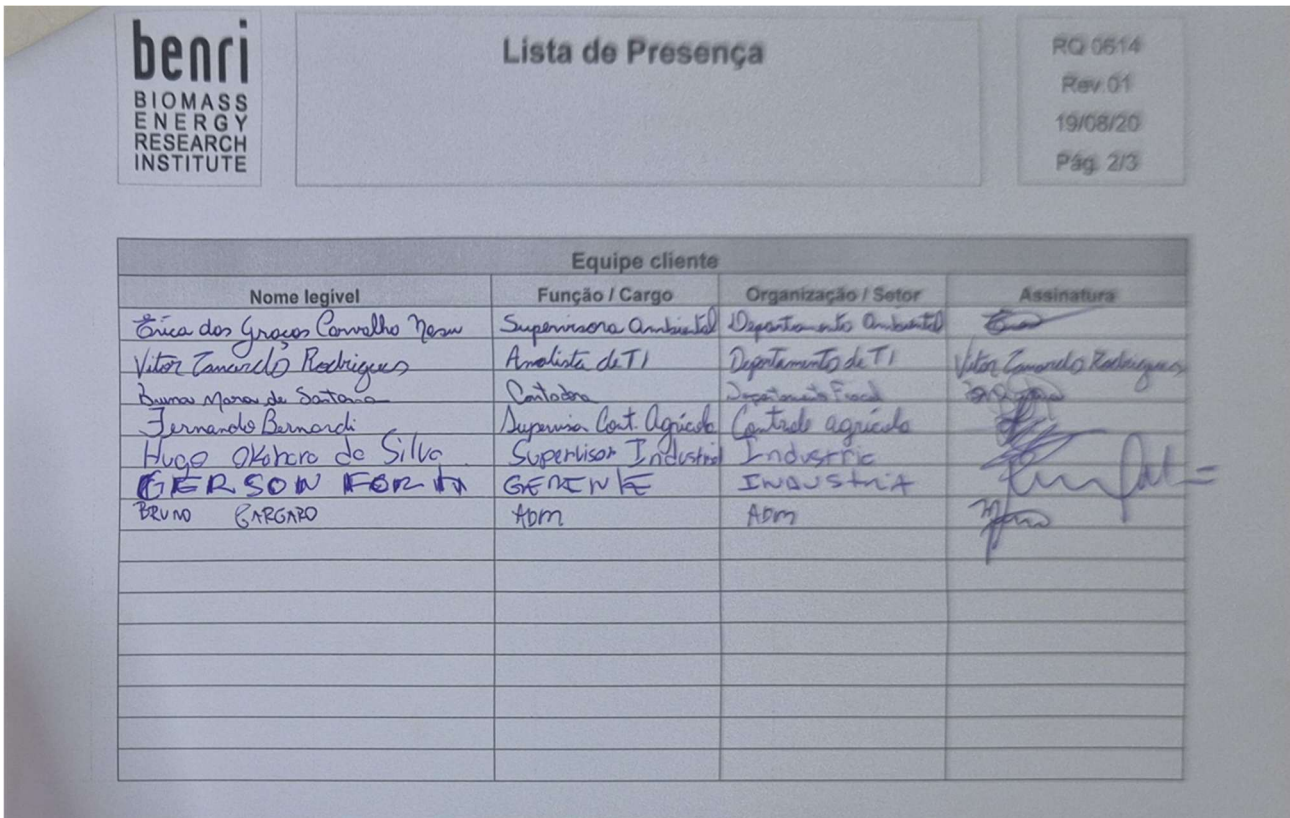 benri
BIOMASS
ENERGY
RESEARCH
INSTITUTE
Lista de Presença
RQ 0614
Rev.01
19/08/20
Pág. 2/3
Equipe cliente
Nome legível Função / Cargo Organização / Setor Assinatura
Érica das Graças Carvalho Supervisora Ambiental Departamento Ambiental
Vitor Zanardo Rodrigues Analista de TI Departamento de TI Vitor Zanardo Rodrigues
Bruna Mara de Santana Contadora Departamento Fiscal
Fernando Bernardi Supervisor Cont. Agrícola Controle agrícola
Hugo Okohara da Silva Supervisor Industrial Industria
GERSON GERENTE INDUSTRIA
BRUNO GARGARO ADM ADM